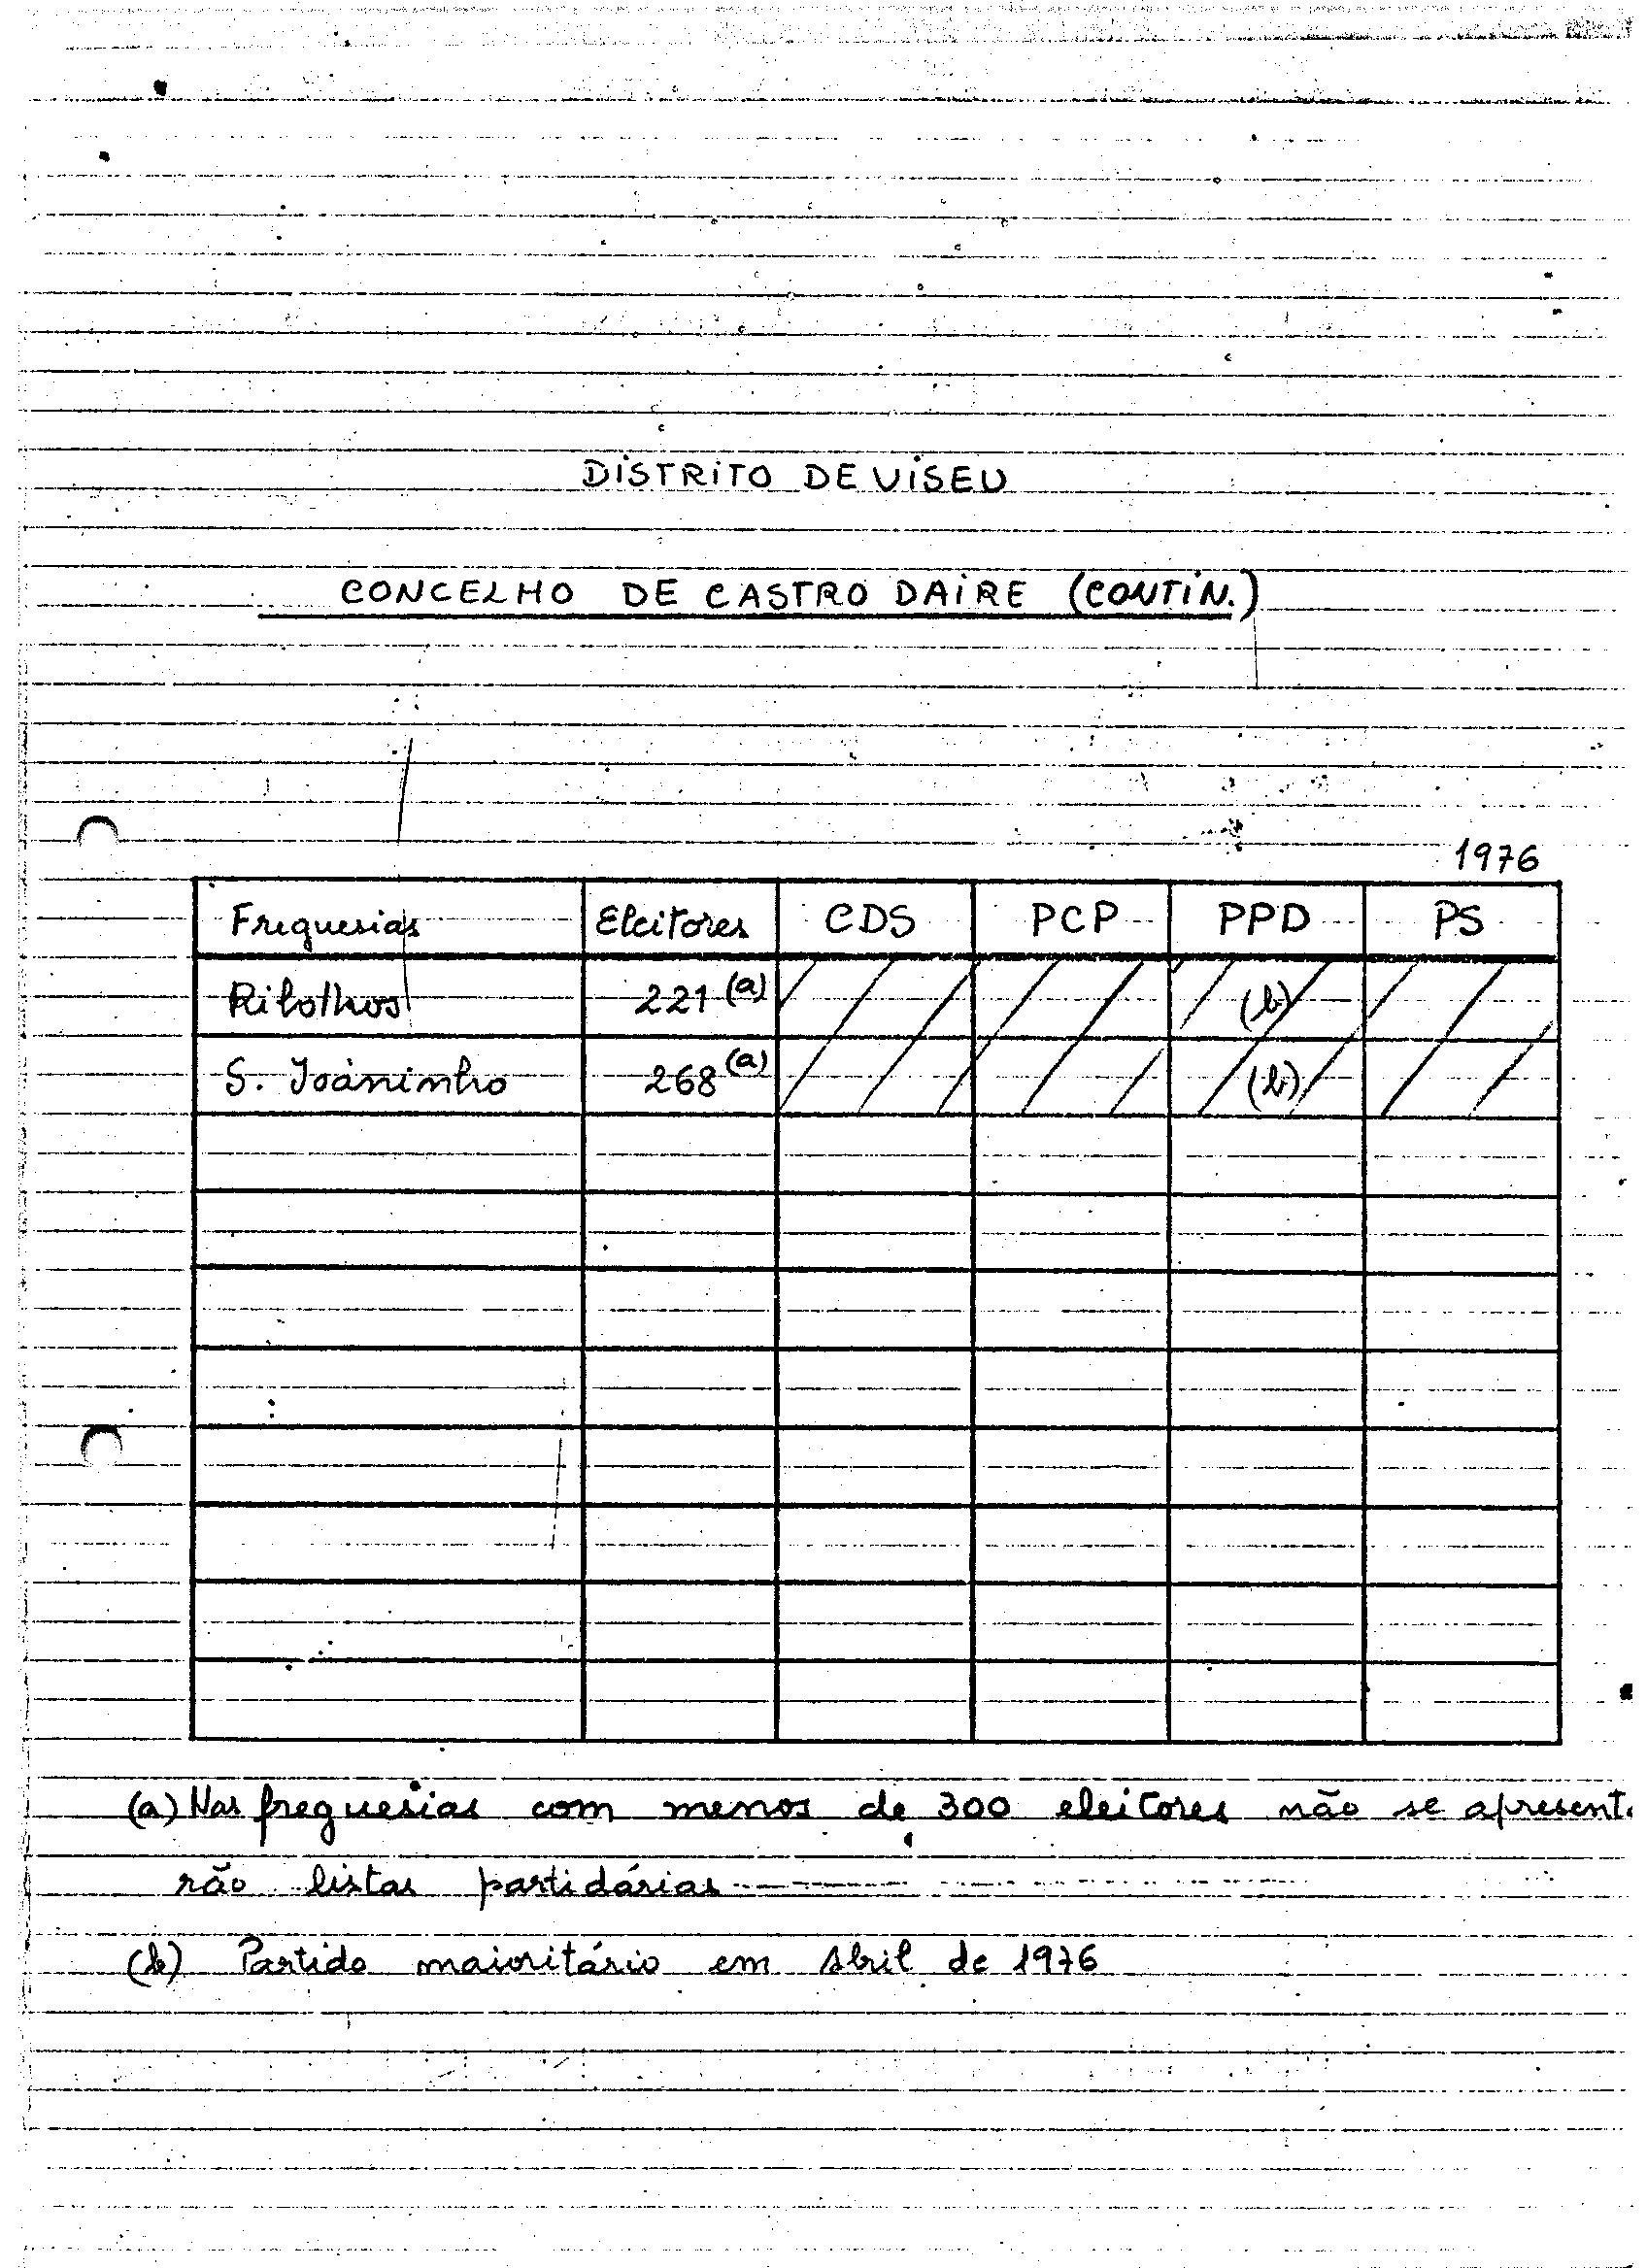 DISTRITO DE VISEU
CONCELHO DE CASTRO DAIRE (CONTIN.)
1976
Freguesias Eleitores CDS PCP PPD PS
Ribolhos 221 (a) (b)
S. Joaninho 268 (a) (b)
(a) Nas freguesias com menos de 300 eleitores não se apresenta
rão listas partidárias
(b) Partido maioritário em Abril de 1976